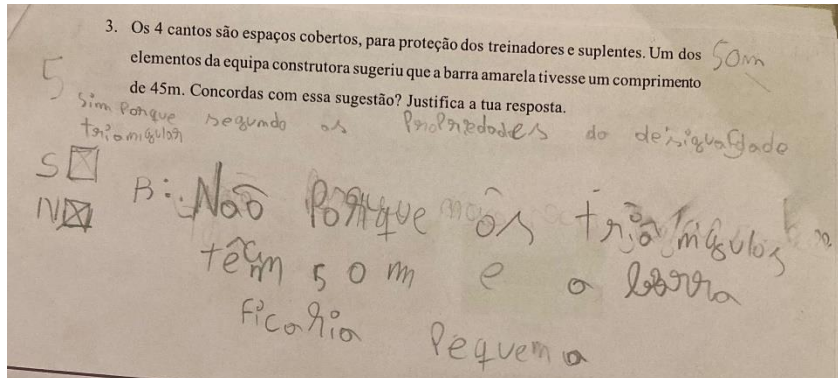 3. Os 4 cantos são espaços cobertos, para proteção dos treinadores e suplentes. Um dos
50m
elementos da equipa construtora sugeriu que a barra amarela tivesse um comprimento
5
de 45m. Concordas com essa sugestão? Justifica a tua resposta.
Sim Porque segundo as Propriedades do desigualdade
triangular
S
N
R: Não Porque os triângulos
têm 50 m e a barra
ficaria Pequena